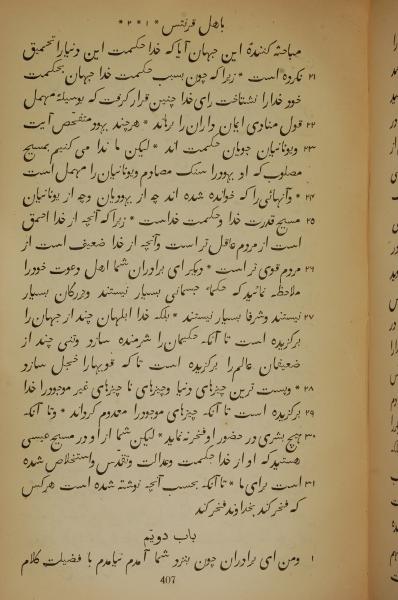 باهل قرنتس * ۱ * ۲ *
مباحثه کنندهٔ این جهان آیا که خدا حکمت این دنیا را تحمیق
۲۱ نکرده است * زیرا که چون بسبب حکمت خدا جهان بحکمت
خود خدا را نشناخت رای خدا چنین قرار گرفت که بوسیلهٔ مهمل
۲۲ قول منادی ایمان داران را برهاند * هر چند یهود متفحص آیت
۲۳ و یونانیان جویان حکمت اند * لیکن ما ندا می کنیم بمسیح
مصلوب که او یهود را سنک مصادم و یونانیان را مهمل است
۲۴ * و آنهائی را که خوانده شده اند چه از یهودیان و چه از یونانیان
۲۵ مسیح قدرت خدا و حکمت خداست * زیرا که آنچه از خدا احمق
است از مردم عاقل تر است و آنچه از خدا ضعیف است از
۲۶ مردم قوی تر است * و دیگر ای برادران شما اهل دعوت خود را
ملاحظه نمائید که حکماء جسمانی بسیار نیستند و بزرکان بسیار
۲۷ نیستند و شرفا بسیار نیستند * بلکه خدا ابلهان چند از جهان را
برگزیده است تا آنکه حکیمان را شرمنده سازد و تنی چند از
ضعیفان عالم را برگزیده است تا که قویها را خجل سازد
۲۸ * و پست ترین چیزهای دنیا و چیزهای نا چیزهای غیر موجود را خدا
۲۹ برگزیده است تا آنکه چیزهای موجود را معدوم گرداند * و تا آنکه
۳۰ هیچ بشری در حضور او فخر ننماید * لیکن شما از او در مسیح عیسی
هستید که او از خدا حکمت و عدالت و تقدّس و استخلاص شده
۳۱ است برای ما * تا آنکه بحسب آنچه نوشته شده است هر کس
که فخر کند بخداوند فخر کند
باب دویّم
۱ و من ای برادران چون بنزد شما آمدم نیامدم با فضیلت کلام
407